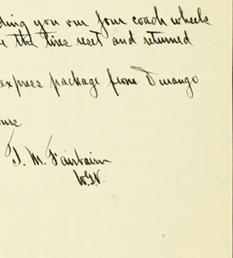 ding you our four coach wheels
e the tires reset and returned
express package from Durango
ours
T. M. Fairbairn